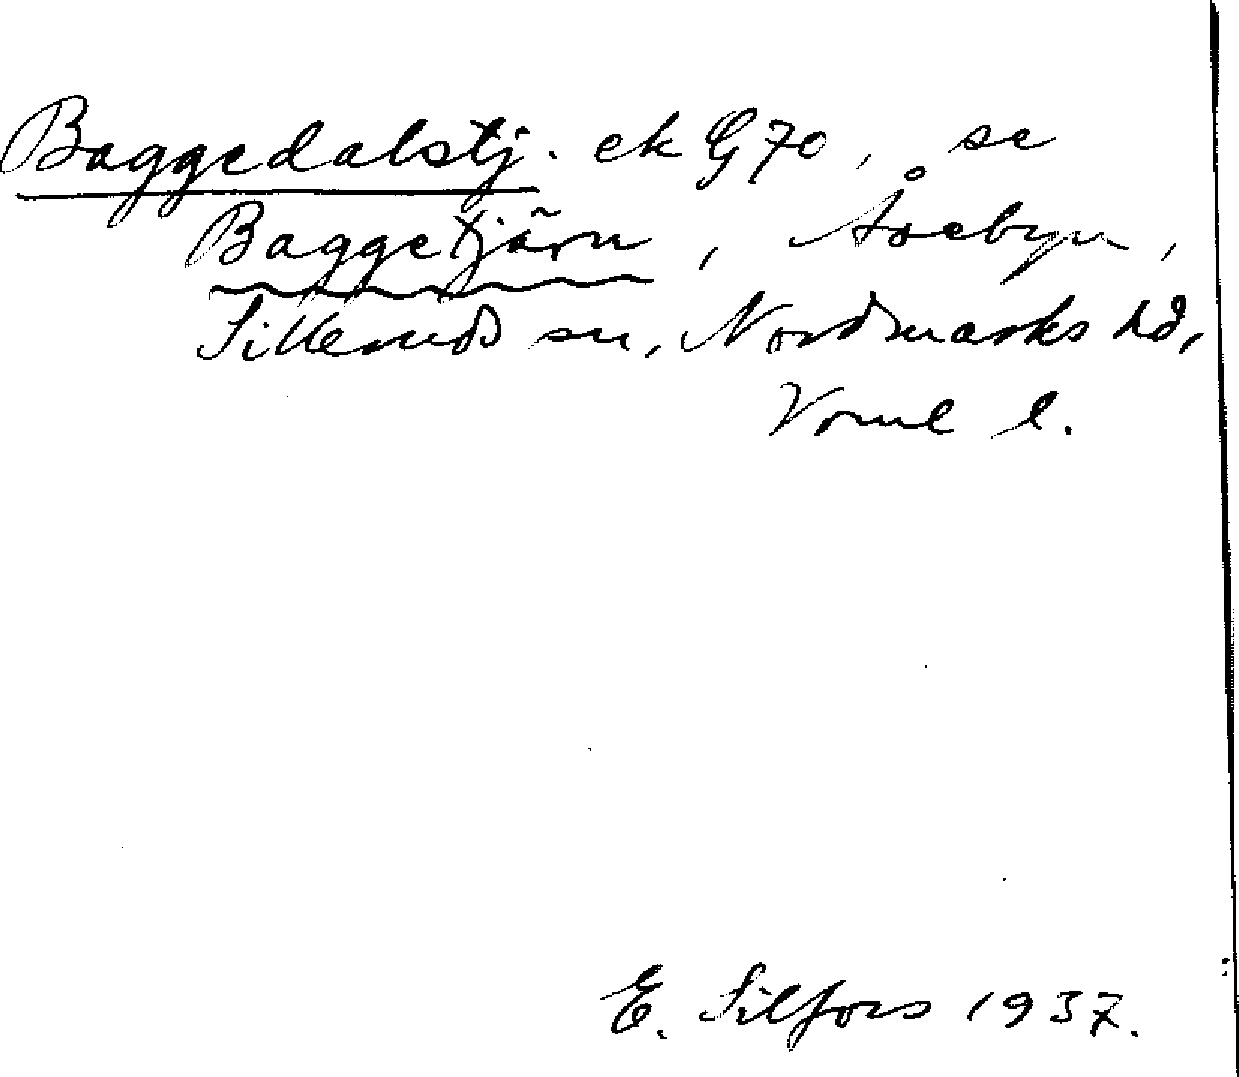 Baggedalstj. ek G 70, se
Baggetjärn, Årebyn,
Silleruds sn, Nordmarks hd,
Vrml l.
E. Silfors 1937.